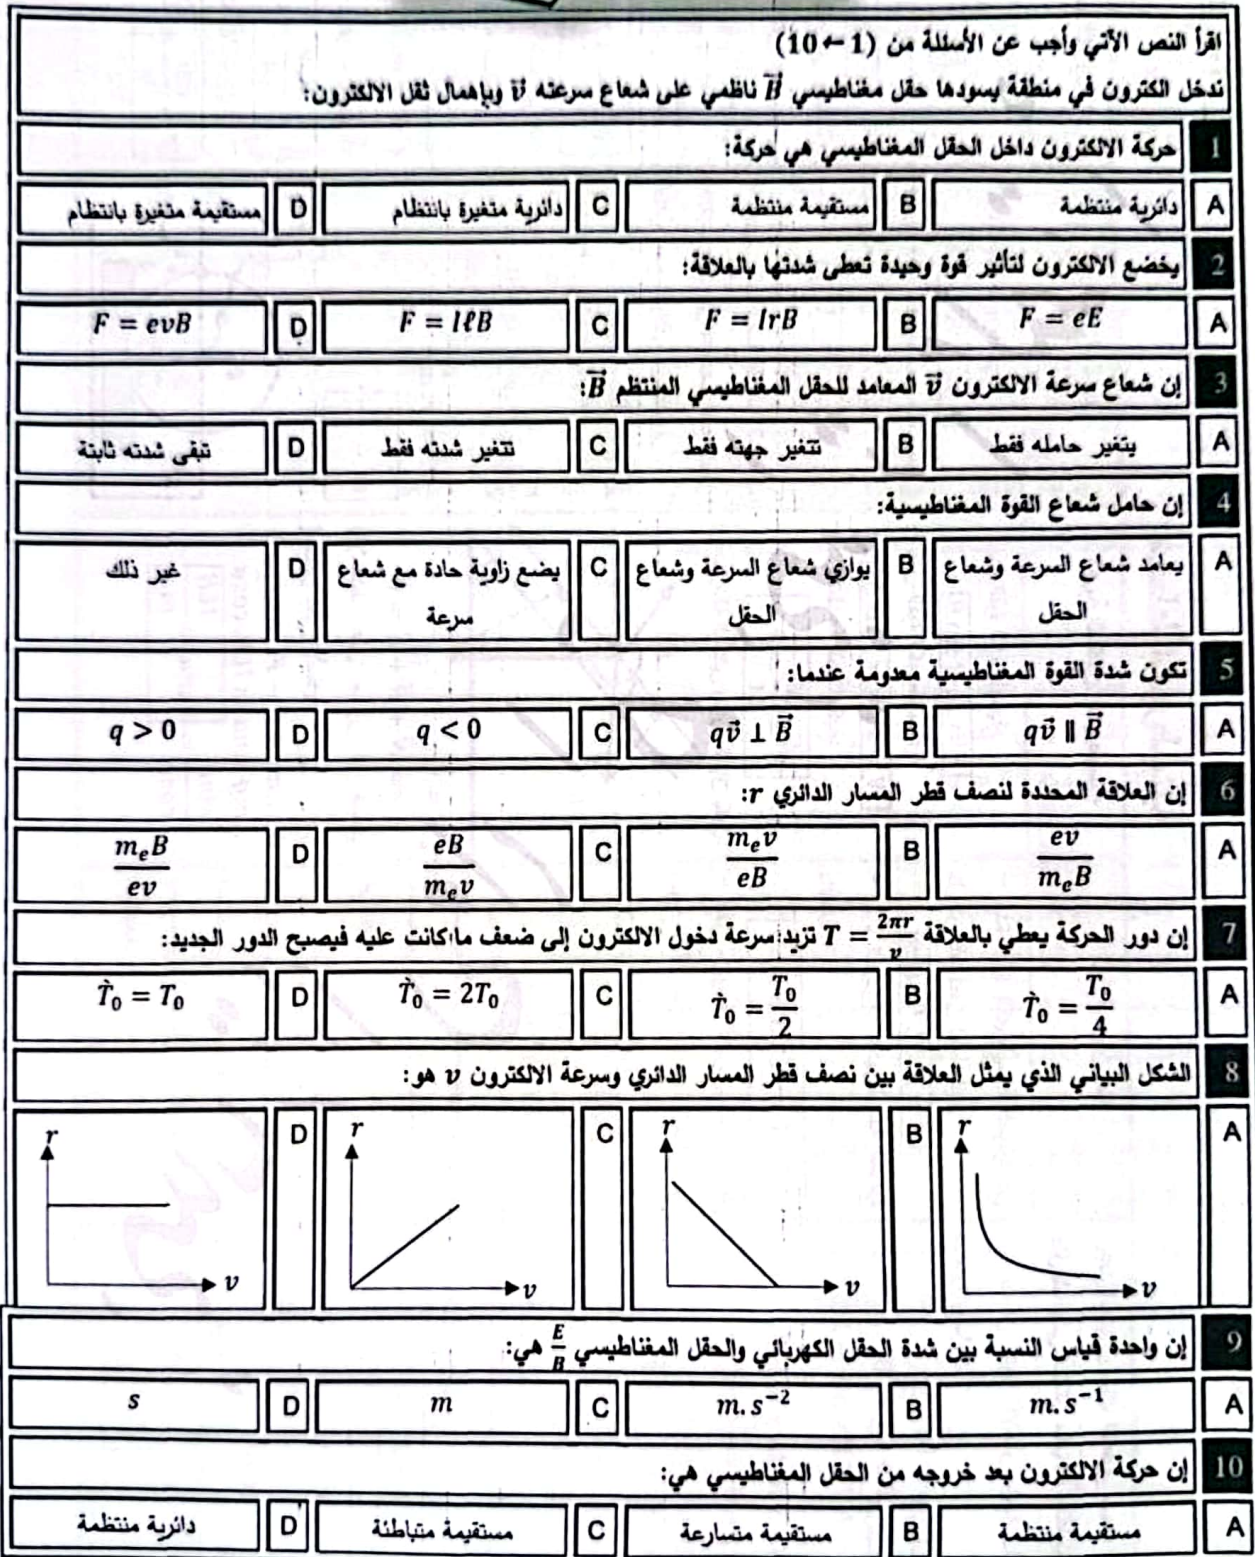 اقرأ النص الآتي وأجب عن الأسئلة من (1 → 10)
تدخل الكترون في منطقة يسودها حقل مغناطيسي B⃗ ناظمي على شعاع سرعته v⃗ وبإهمال ثقل الالكترون:
1 حركة الالكترون داخل الحقل المغناطيسي هي حركة:
A دائرية منتظمة B مستقيمة منتظمة C دائرية متغيرة بانتظام D مستقيمة متغيرة بانتظام
2 يخضع الالكترون لتأثير قوة وحيدة تعطى شدتها بالعلاقة:
A F = eE B F = IrB C F = IℓB D F = evB
3 إن شعاع سرعة الالكترون v⃗ المعامد للحقل المغناطيسي المنتظم B⃗:
A يتغير حامله فقط B تتغير جهته فقط C تتغير شدته فقط D تبقى شدته ثابتة
4 إن حامل شعاع القوة المغناطيسية:
A يعامد شعاع السرعة وشعاع الحقل B يوازي شعاع السرعة وشعاع الحقل C يضع زاوية حادة مع شعاع سرعة D غير ذلك
5 تكون شدة القوة المغناطيسية معدومة عندما:
A qv⃗ ∥ B⃗ B qv⃗ ⊥ B⃗ C q < 0 D q > 0
6 إن العلاقة المحددة لنصف قطر المسار الدائري r:
A ev/mₑB B mₑv/eB C eB/mₑv D mₑB/ev
7 إن دور الحركة يعطي بالعلاقة T = 2πr/v تزيد سرعة دخول الالكترون إلى ضعف ما كانت عليه فيصبح الدور الجديد:
A T̀₀ = T₀/4 B T̀₀ = T₀/2 C T̀₀ = 2T₀ D T̀₀ = T₀
8 الشكل البياني الذي يمثل العلاقة بين نصف قطر المسار الدائري وسرعة الالكترون v هو:
A r v B r v C r v D r v
9 إن واحدة قياس النسبة بين شدة الحقل الكهربائي والحقل المغناطيسي E/B هي:
A m.s⁻¹ B m.s⁻² C m D s
10 إن حركة الالكترون بعد خروجه من الحقل المغناطيسي هي:
A مستقيمة منتظمة B مستقيمة متسارعة C مستقيمة متباطئة D دائرية منتظمة